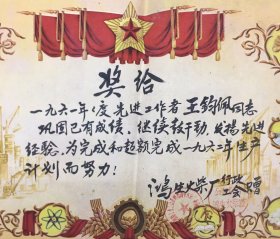 奖给
一九六一年度先进工作者王钧佩同志
巩固已有成绩、继续鼓干劲、发扬先进
经验、为完成和超额完成一九六二年生产
计划而努力！
鸿生火柴厂行政
工会 赠